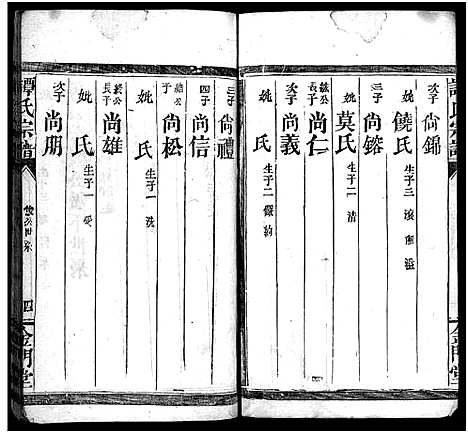 譚氏宗譜
次子 尚錦
妣 饒氏 生子三
次子 尚鎔
妣 莫氏 生子一 清
長子 尚仁
次子 尚義
妣 氏 生子二
三子 尚禮
四子 尚信
尚松
妣 氏 生子一
長子 尚雄
妣 氏 生子一
次子 尚朋
譚氏宗譜
四
金門堂